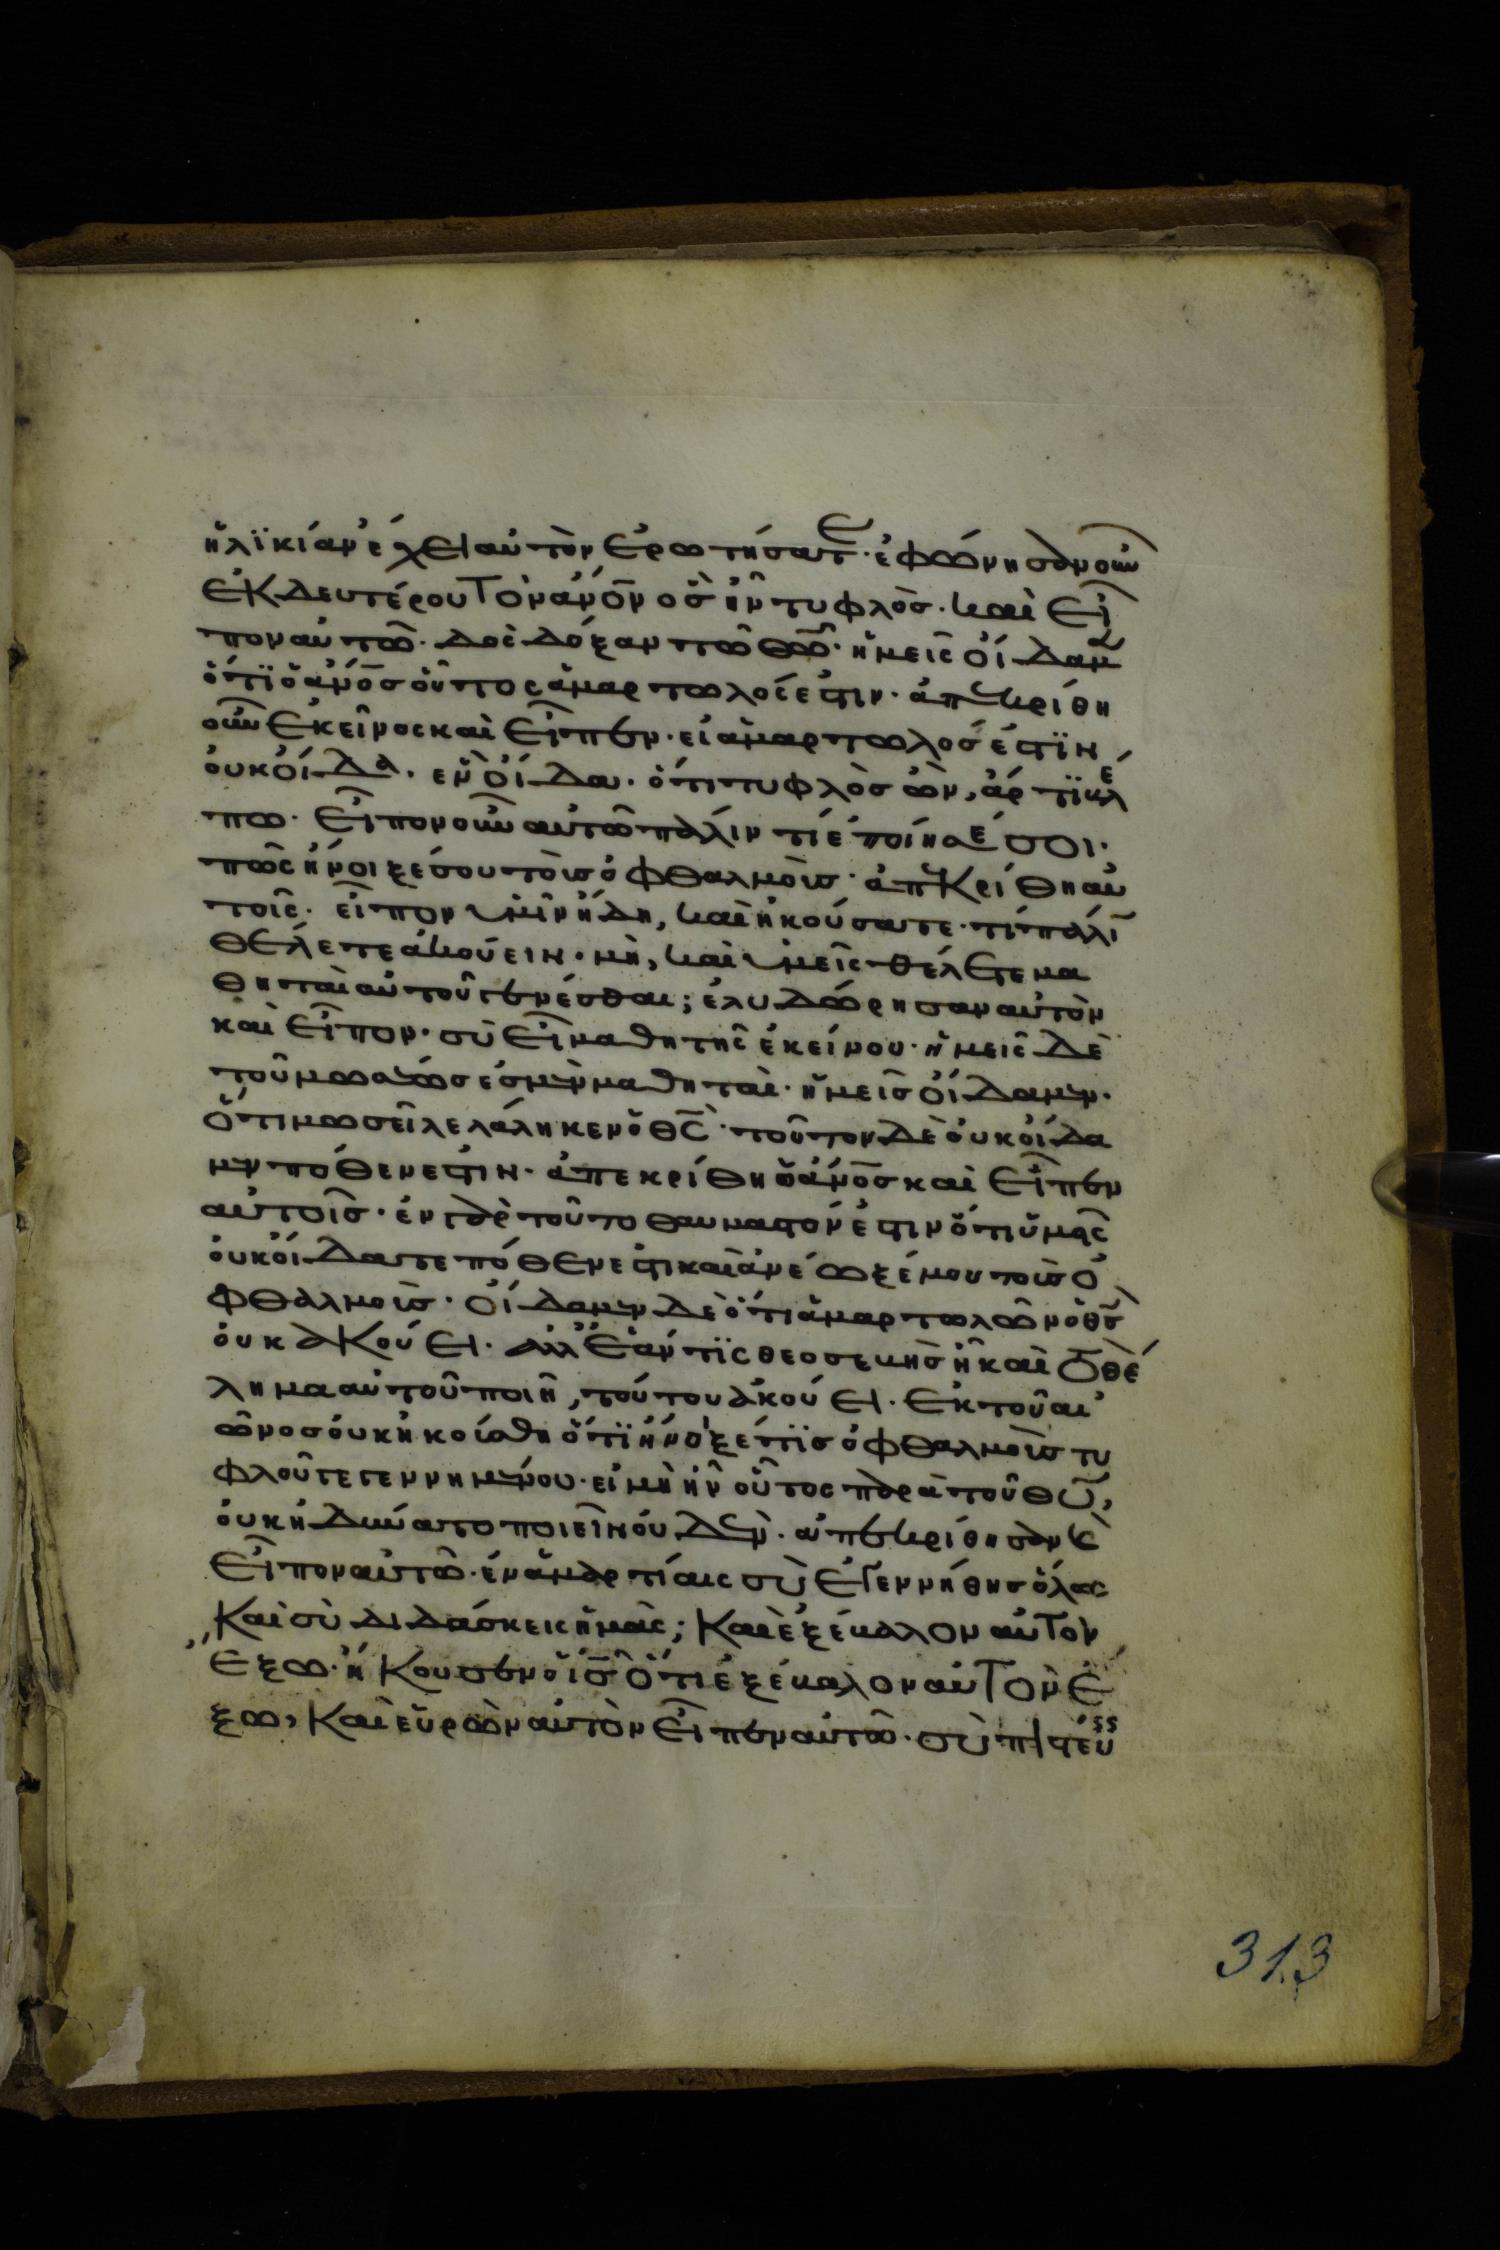 ἡλϊκίαν ἔχει αὐτὸν ἐρωτήσατε· ἐφώνησαν οὖν
ἐκ δευτέρου τὸν ἀνὸν ὃς ἦν τυφλὸς· καὶ εἶ
πον αὐτῶ· δὸς δόξαν τῶ θῶ· ἡμεῖς οἴδαμεν
ὅτϊ ὁ ἀνὸς οὗτος ἁμαρτωλός ἐστιν· ἀπεκρίθη
οὖν ἐκεῖνος καὶ εἶπεν· εἰ ἁμαρτωλός ἐστϊν
οὐκ οἶδα· ἓν οἶδα· ὅτι τυφλὸς ὢν, ἄρτϊ βλέ
πω· εἶπον οὖν αὐτῶ πάλιν τί ἐποίησέ σοι·
πῶς ἤνοιξέ σου τοὺς ὀφθαλμοὺς· ἀπεκρίθη αὐ
τοῖς· εἶπον ὑμῖν ἤδη, καὶ ἠκούσατε· τί πάλιν
θέλετε ἀκούειν· μὴ, καὶ ὑμεῖς θέλετε μα
θηταὶ αὐτοῦ γενέσθαι; ἐλυδώρησαν αὐτὸν
καὶ εἶπον· σὺ εἶ μαθητὴς ἐκείνου· ἡμεῖς δὲ
τοῦ μωσέως ἐσμὲν μαθηταὶ· ἡμεῖς οἴδαμεν·
ὅτι μωσεῖ λελάληκεν ὁ θς· τοῦτον δὲ οὐκ οἴδα
μεν πόθεν ἐστιν· ἀπεκρίθη ὁ ἀνὸς καὶ εἶπεν
αὐτοῖς· ἐν γὰρ τοῦτο θαυμαστόν ἐστιν ὅτι ὑμεῖς
οὐκ οἴδατε πόθεν ἐστι καὶ ἀνέωξέ μου τοὺς ὀ
φθαλμοὺς· οἴδαμεν δὲ ὅτι ἁμαρτωλῶν ὁ θς
οὐκ ἀκούει· ἀλλ' ἐάν τϊς θεοσεβὴς ἦ καὶ τὸ θέ
λημα αὐτοῦ ποιῆ, τούτου ἀκούει· ἐκ τοῦ αἰ
ῶνος οὐκ ἠκούσθη ὅτϊ ἤνοιξέ τϊς ὀφθαλμοὺς τυ
φλοῦ γεγεννημένου· εἰ μὴ ἦν οὗτος παρὰ τοῦ θυ,
οὐκ ἠδύνατο ποιεῖν οὐδὲν· ἀπεκρίθησαν καὶ
εἶπον αὐτῶ· ἐν ἁμαρτίαις σὺ ἐγεννήθης ὅλος
καὶ σὺ διδάσκεις ἡμᾶς; καὶ ἐξέβαλον αὐτὸν
ἔξω· ἤκουσεν ὁ ις ὅτι ἐξέβαλον αὐτὸν ἔ
ξω, καὶ εὑρὼν αὐτὸν εἶπεν αὐτῶ· σὺ πιστεύ
313